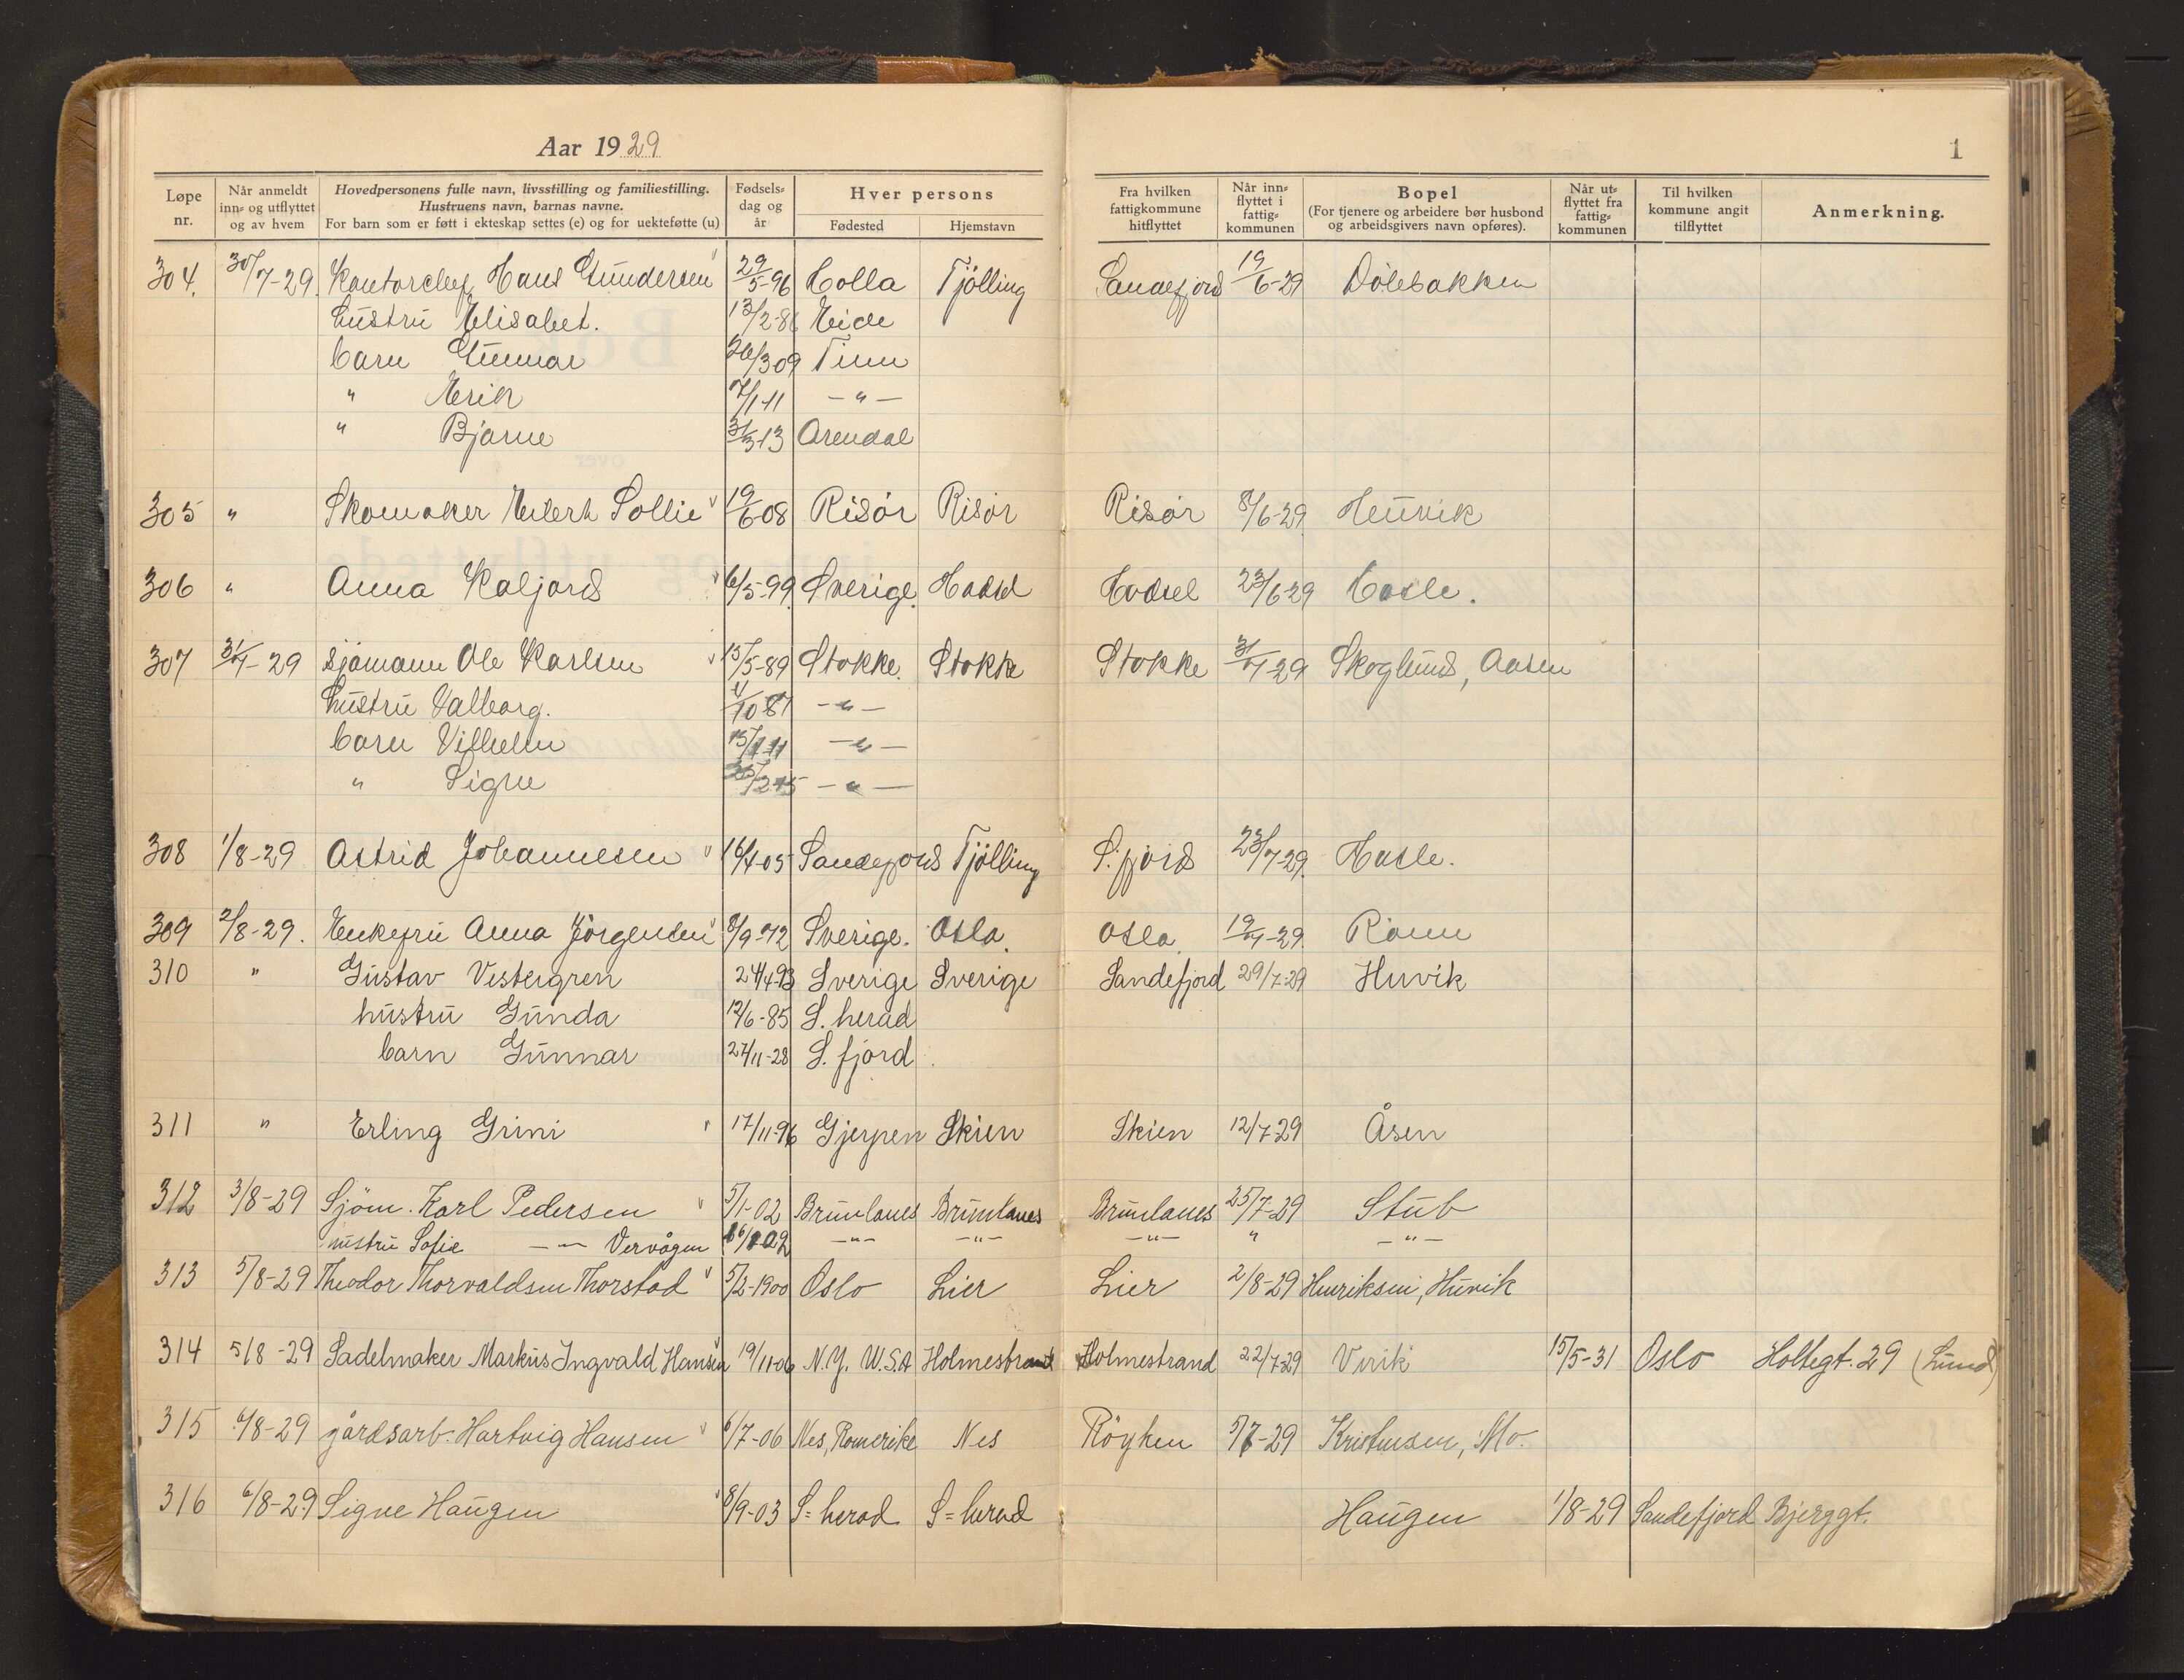 Aar 1929
1
Løpe nr.
Når anmeldt inn- og utflyttet og av hvem
Hovedpersonens fulle navn, livsstilling og familiestilling. Hustruens navn, barnas navne. For barn som er føtt i ekteskap settes (e) og for uekteføtte (u)
Fødsels-dag og år
Hver persons
Fødested
Hjemstavn
Fra hvilken fattigkommune hitflyttet
Når inn-flyttet i fattig-kommunen
Bopel (For tjenere og arbeidere bør husbond og arbeidsgivers navn opføres).
Når ut-flyttet fra fattig-kommunen
Til hvilken kommune angit tilflyttet
Anmerkning.
304. 30/7-29. Kontorchef Hans Gundersen 29/5-96 Holla Tjølling Sandefjord 19/6-29 Dølebakken
hustru Elisabet. 13/2-86 Eide
barn Gunnar 26/3 09 Tinn
" Erik 7/1-11 -"-
" Bjarne 31/3 13 Arendal
305 " Skomaker Eilert Sollie 19/6-08 Risør Risør Risør 8/6-29 Heuvik
306 " Anna Kaljord 6/5-99. Sverige. Hadsel Hadsel 23/6-29 Hasle.
307 31/7-29 Sjømann Ole Karlsen 15/5-89 Stokke. Stokke Stokke 31/7-29 Skoglund, Aasen
hustru Valborg. /10 81 -"-
barn Vilhelm 15/1 11 -"-
" Signe /2 15 -"-
308 1/8-29 Astrid Johannesen 16/4-05 Sandefjord Tjølling S.fjord 23/7-29. Hasle.
309 2/8-29. Enkefru Anna Jørgensen 8/9-72 Sverige. Oslo. Oslo. 19/7-29. Råum
310 " Gustav Vestergren 24/4-93 Sverige Sverige Sandefjord 29/7-29 Huvik
hustru Gunda 12/6-85 S. herad
barn Gunnar 27/11-28 S. fjord
311 " Erling Grini 17/11-96 Gjerpen Skien Skien 12/7-29 Åsen
312 3/8-29 Sjøm. Karl Pedersen 5/1-02 Brunlanes Brunlanes Brunlanes 25/7-29 Stub
hustru Sofie -"- Vervågen -"- -"- -"- " -"-
313 5/8-29 Theodor Thorvaldsen Thorstad 5/2-1900 Oslo Lier Lier 2/8-29 Henriksen, Huvik
314 5/8-29 Sadelmaker Markus Ingvald Hansen 19/11-06 N.Y. U.S.A Holmestrand Holmestrand 22/7-29 Virik 15/5-31 Oslo Holtegt. 29 (Lund)
315 6/8-29 gårdsarb. Hartvig Hansen 6/7-06 Nes, Romerike Nes Røyken 5/7-29 Kristensen, Mo.
316 6/8-29 Signe Haugen 8/9-03 S=herad S=herad Haugen 1/8-29 Sandefjord Bjerggt.